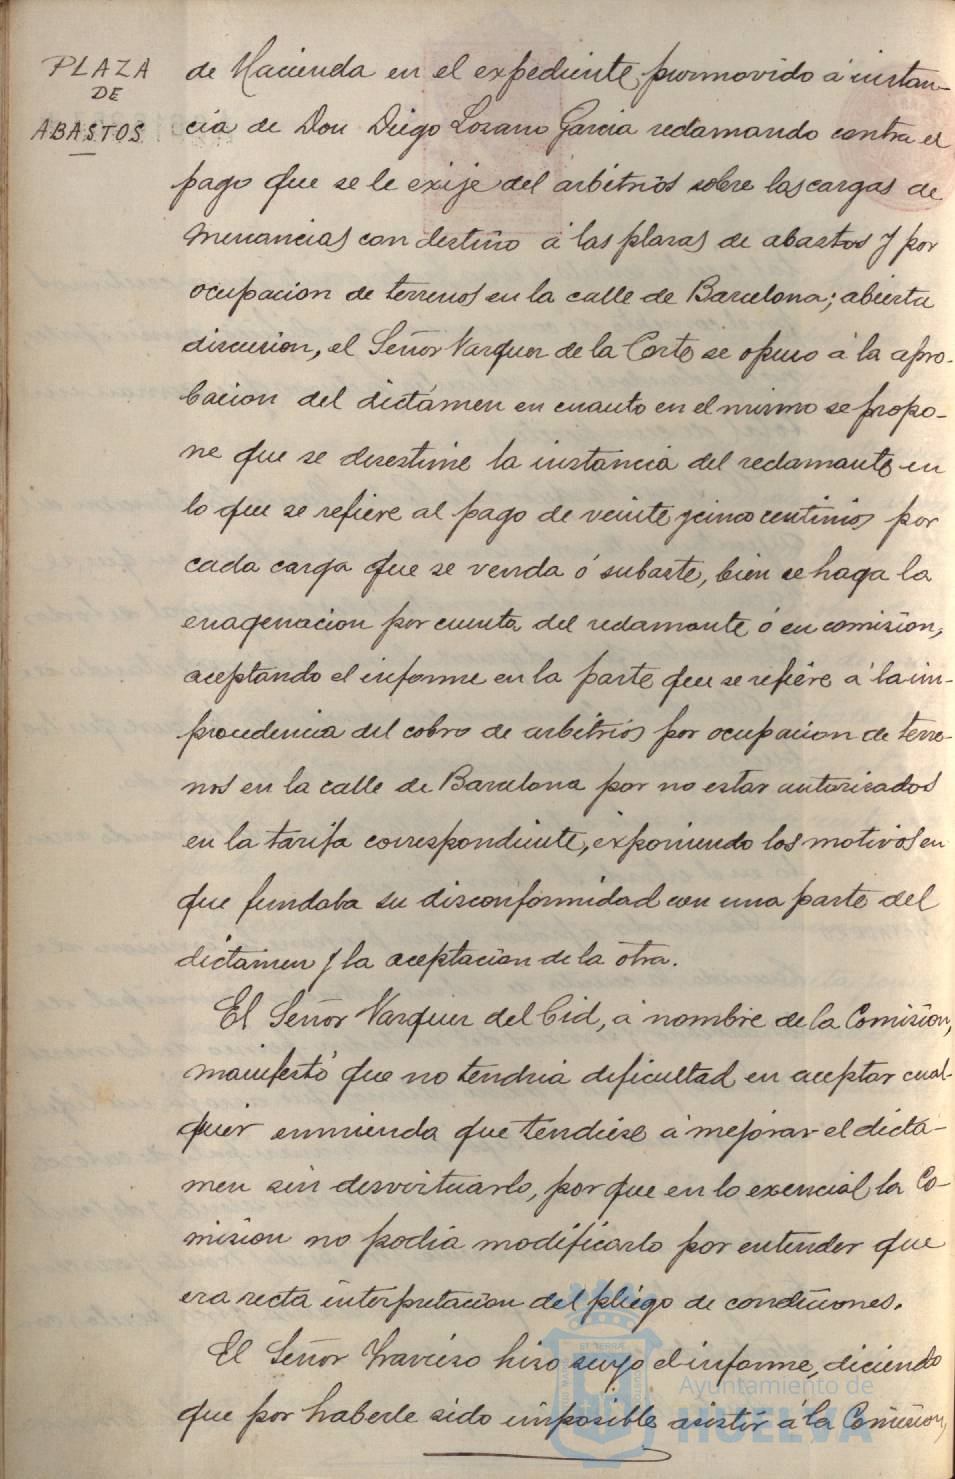 PLAZA
DE
ABASTOS
de Hacienda en el expediente promovido á instan-
cia de Don Diego Lozano Garcia reclamando contra el
pago que se le exije del arbitrios sobre las cargas de
mercancias con destino á las plazas de abastos y por
ocupacion de terrenos en la calle de Barcelona; abierta
discusion, el Señor Vazquez de la Corte se opuso á la apro-
bacion del dictámen en cuanto en el mismo se propo-
ne que se desestime la instancia del reclamante en
lo que se refiere al pago de veinte y cinco centimos por
cada carga que se venda ó subaste, bien se haga la
enagenacion por cuenta del reclamante ó en comision,
aceptando el informe en la parte que se refiere á la im-
procedencia del cobro de arbitrios por ocupacion de terre-
nos en la calle de Barcelona por no estar autorizados
en la tarifa correspondiente, exponiendo los motivos en
que fundaba su disconformidad con una parte del
dictamen y la aceptacion de la otra.
El Señor Vazquez del Cid, á nombre de la Comision,
manifestó que no tendria dificultad en aceptar cual-
quier enmienda que tendiese á mejorar el dictá-
men sin desvirtuarlo, por que en lo exencial la Co-
mision no podia modificarlo por entender que
era recta interpretacion del pliego de condiciones.
El Señor Narciso hizo suyo el informe, diciendo
que por haberle sido imposible asistir á la Comision,
Ayuntamiento de
HUELVA